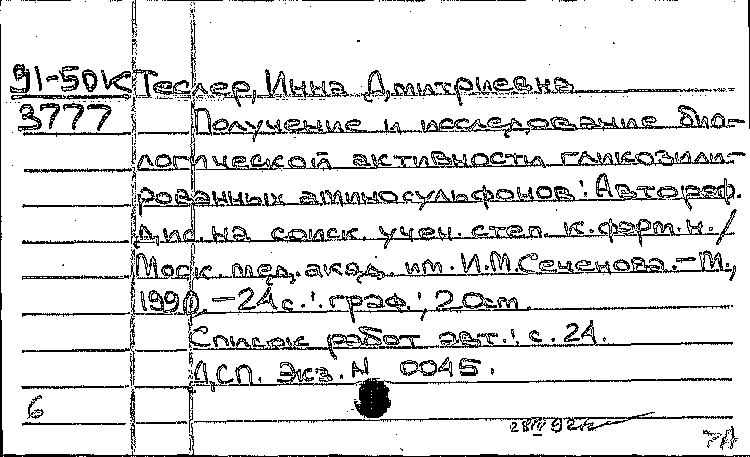 91-50к Теслер, Инна Дмитриевна
3777 Получение и исследование био-
логической активности гликозили-
рованных аминосульфонов: Автореф.
дис. на соиск. учен. степ. к.фарм.н./
Моск. мед. акад. им. И.М.Сеченова.-М.,
1990.-24с.:граф.; 20см
Список работ авт.: с.24.
ДСП. Экз.N 0045.
6